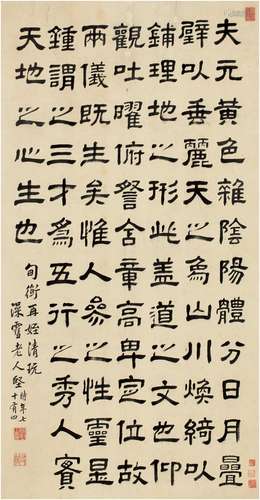 夫元黃色雜陰陽體分日月疊
璧以垂麗天之象山川煥綺以
鋪理地之形此蓋道之文也仰
觀吐曜俯詧含章高卑定位故
兩儀既生矣惟人參之性靈是
鍾謂之三才為五行之秀人實
天地之心生也
旬衡再姪清玩
深雪老人堅
時年七
十有四